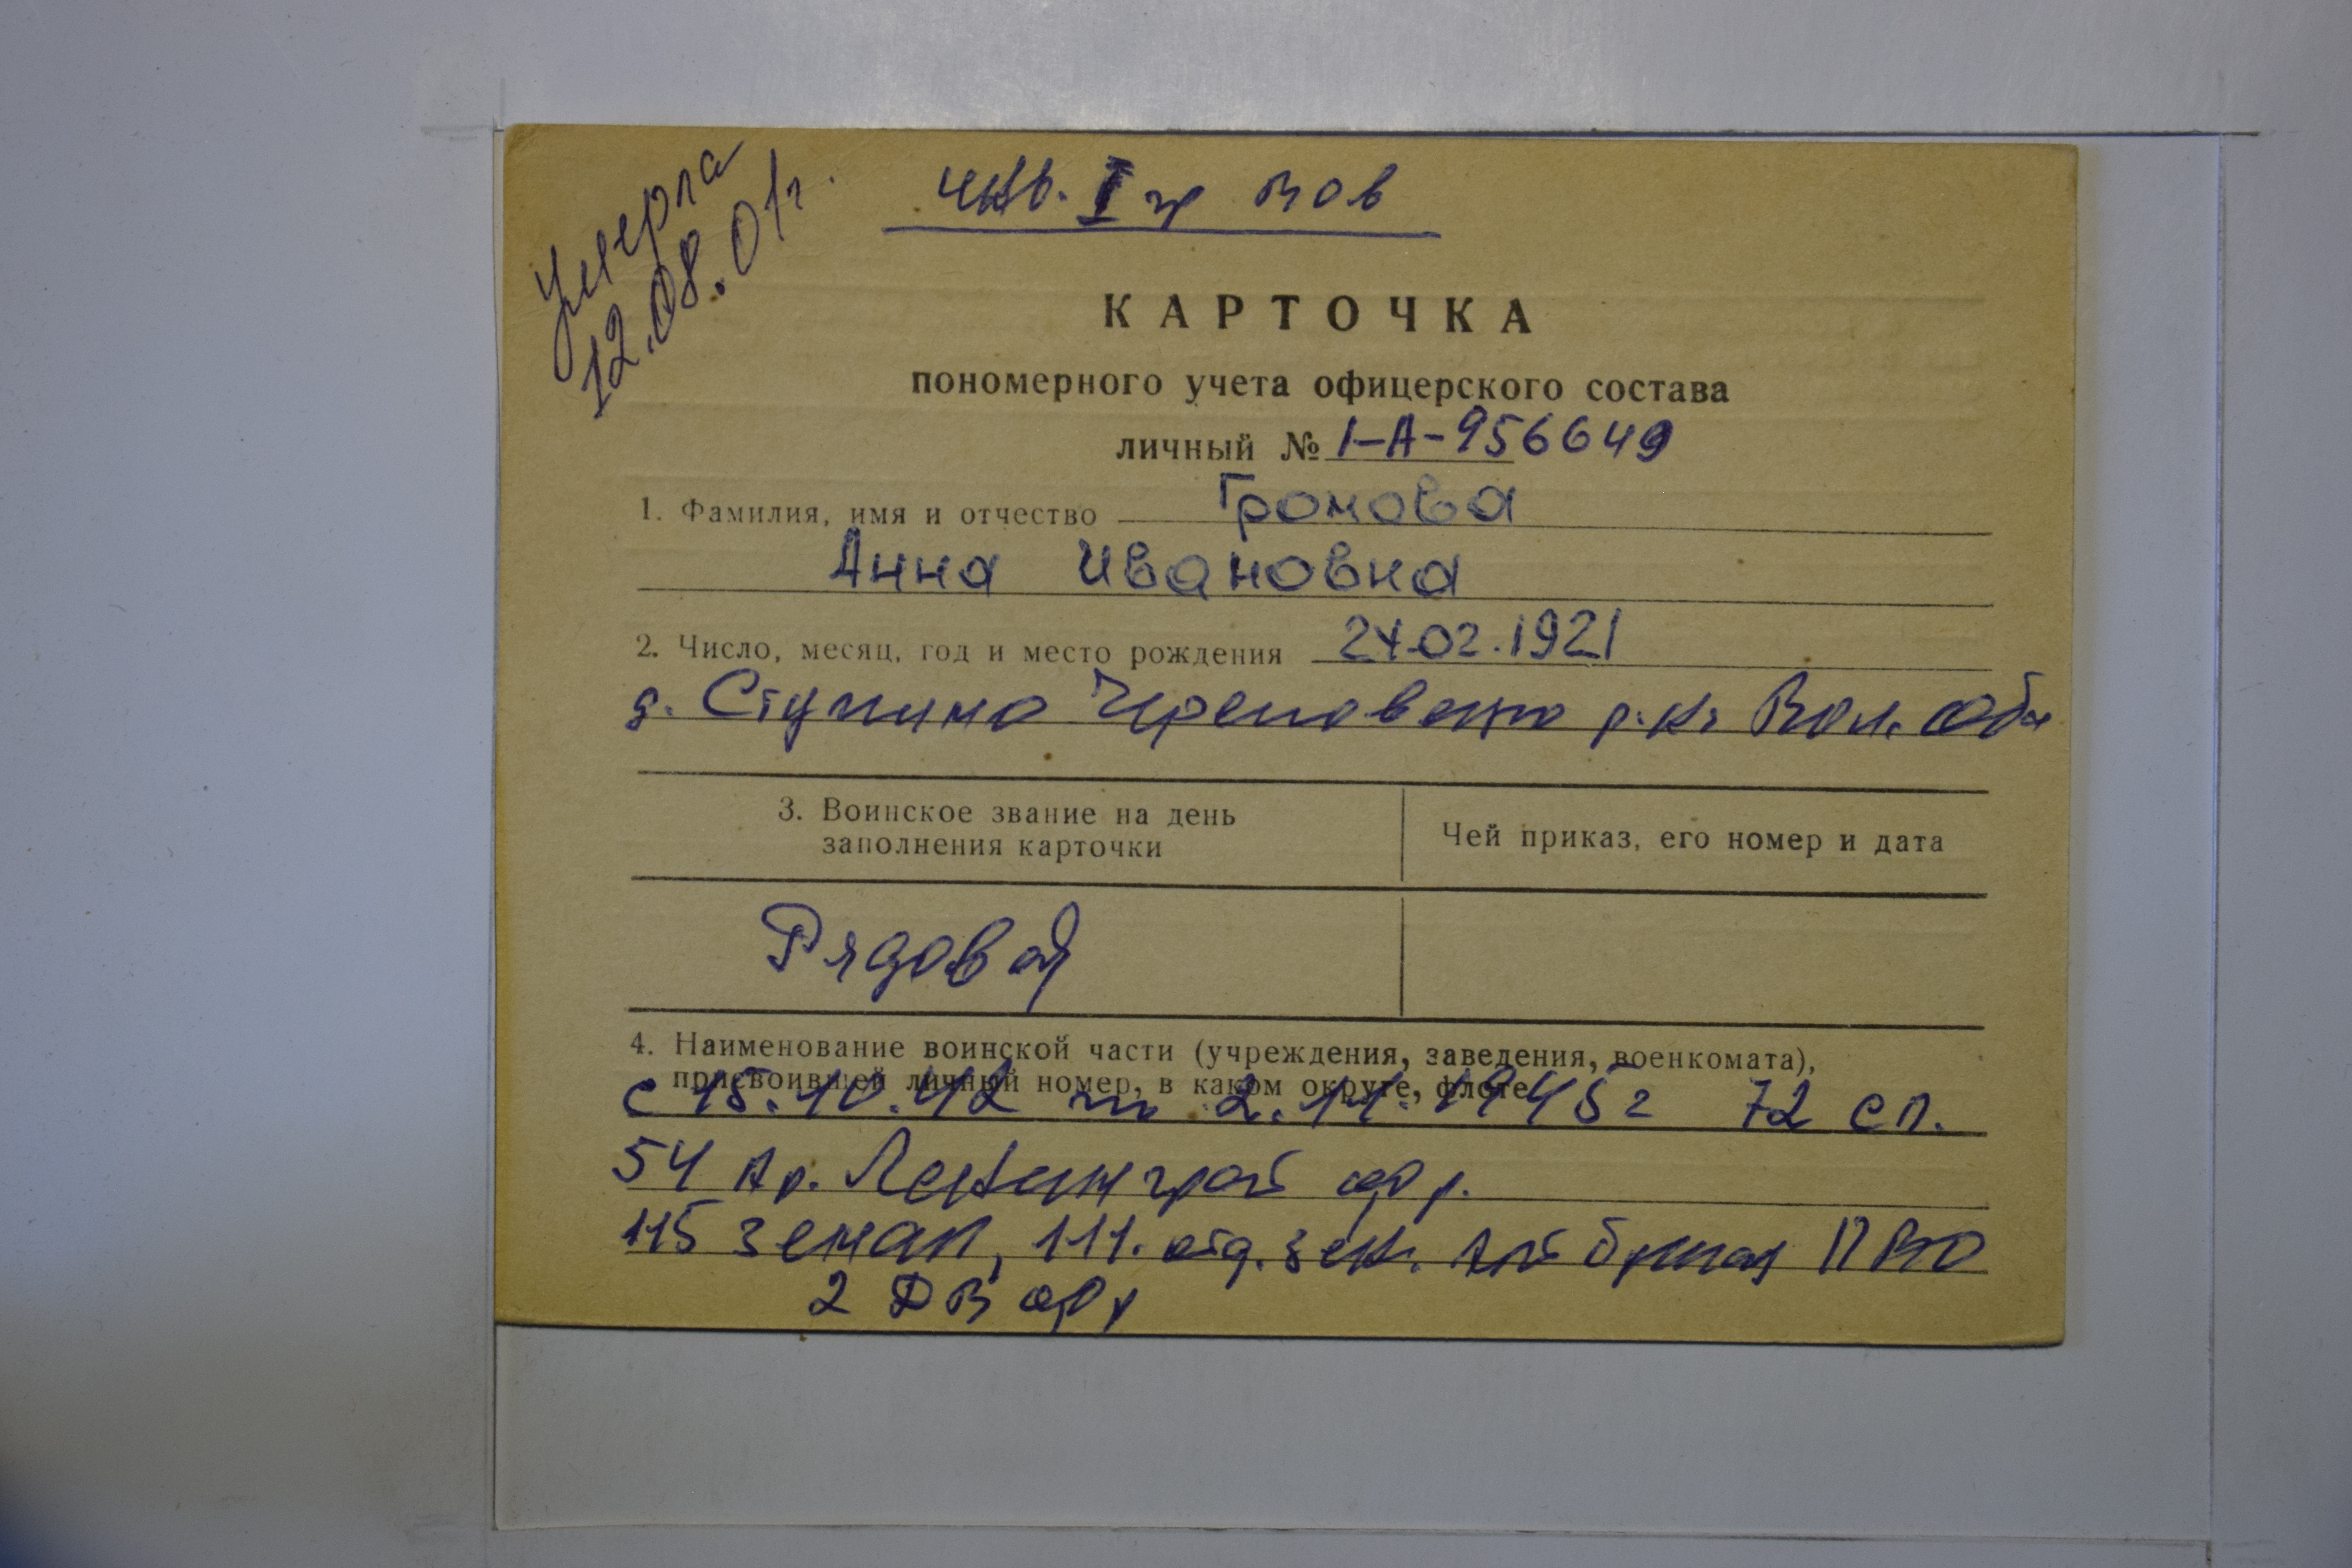 Умерла
12.08.01г.
инв. I гр ВОв
КАРТОЧКА
пономерного учета офицерского состава
личный № I-А-956649
1. Фамилия, имя и отчество Громова
Анна Ивановна
2. Число, месяц, год и место рождения 24.02.1921
д. Ступино Череповецко р-на Вол. обл
3. Воинское звание на день
заполнения карточки
Чей приказ, его номер и дата
Рядовой
4. Наименование воинской части (учреждения, заведения, военкомата),
присвоившей личный номер, в каком округе, флоте
с 15.10.42 по 2.11.1945г 72 сп.
54 Ар. Ленинград фр.
115 зенап, 111. отд. зен. ПВО
2 ДВ фр